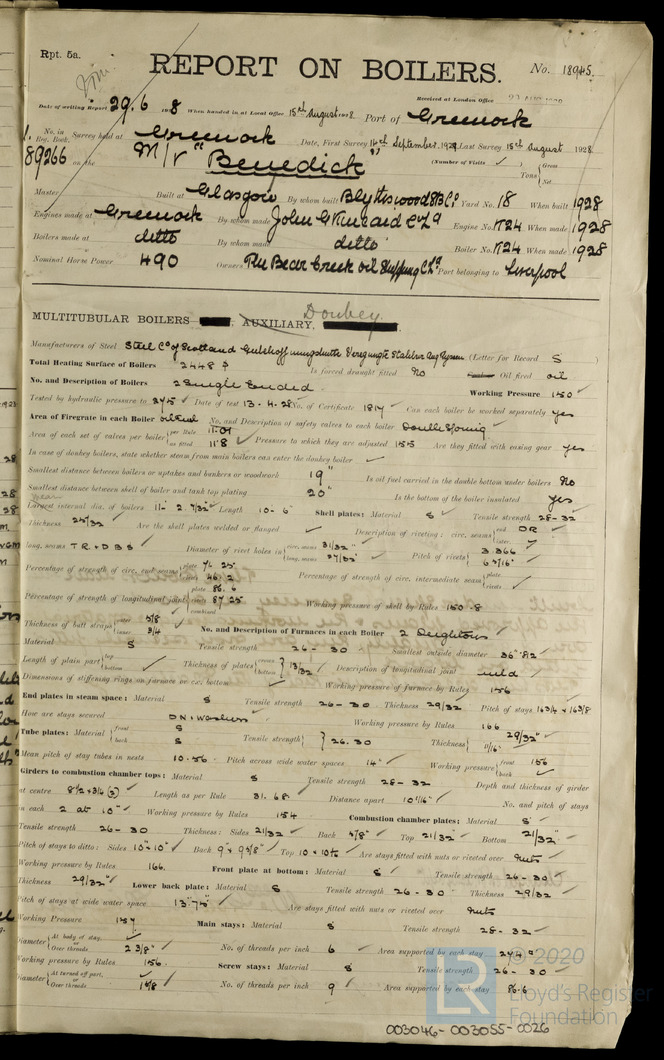 Rpt. 5a.
REPORT ON BOILERS.
No. 18945.
Received at London Office
Date of writing Report 29.6 1928 When handed in at Local Office 15th August 1928 Port of Greenock
No. in Reg. Book. Survey held at Greenock Date, First Survey 16th September, 1927 Last Survey 15th August 1928
89266 on the M/V "Benedick (Number of Visits ) Gross Tons Net
Master Built at Glasgow By whom built Blythswood S.B. Co. Yard No. 18 When built 1928
Engines made at Greenock By whom made John G Kincaid & Co Ld Engine No. K24 When made 1928
Boilers made at ditto By whom made ditto Boiler No. K24 When made 1928
Nominal Horse Power 490 Owners The Bear Creek Oil Shipping Co Ld Port belonging to Liverpool
MULTITUBULAR BOILERS AUXILIARY, Donkey.
Manufacturers of Steel Steel Co of Scotland (Letter for Record S )
Total Heating Surface of Boilers 2448 Is forced draught fitted No Oil fired oil
No. and Description of Boilers 2 Single Ended Working Pressure 150
Tested by hydraulic pressure to 275 Date of test 13-4-28 No. of Certificate 1817 Can each boiler be worked separately yes
Area of Firegrate in each Boiler oil fuel No. and Description of safety valves to each boiler Double Spring
Area of each set of valves per boiler per Rule 11.07 as fitted 11.8 Pressure to which they are adjusted 155 Are they fitted with easing gear yes
In case of donkey boilers, state whether steam from main boilers can enter the donkey boiler
Smallest distance between boilers or uptakes and bunkers or woodwork 19" Is oil fuel carried in the double bottom under boilers No
Smallest distance between shell of boiler and tank top plating 20" Is the bottom of the boiler insulated yes
Largest internal dia. of boilers 11'- 2 7/32" Length 10-6" Shell plates: Material S Tensile strength 28-32
Thickness 25/32 Are the shell plates welded or flanged Description of riveting: circ. seams end DR inter.
long. seams T.R.&D.B.S Diameter of rivet holes in circ. seams 31/32" long. seams 27/32" Pitch of rivets 3.366 6 3/16"
Percentage of strength of circ. end seams plate 71.25 rivet 46.2 Percentage of strength of circ. intermediate seam plate rivets
Percentage of strength of longitudinal joint plate 86.6 rivet 87.25 combined Working pressure of shell by Rules 150.8
Thickness of butt straps outer 5/8 inner 3/4 No. and Description of Furnaces in each Boiler 2 Deightons
Material S Tensile strength 26-30 Smallest outside diameter 36".82
Length of plain part top bottom Thickness of plates crown bottom 13/32 Description of longitudinal joint weld
Dimensions of stiffening rings on furnace or c.c. bottom Working pressure of furnace by Rules 156
End plates in steam space: Material S Tensile strength 26-30 Thickness 29/32 Pitch of stays 16 3/4 x 16 3/8
How are stays secured DN & Washers Working pressure by Rules 166
Tube plates: Material front S back S Tensile strength 26-30 Thickness 29/32" 11/16"
Mean pitch of stay tubes in nests 10.56 Pitch across wide water spaces 14" Working pressure front 156 back
Girders to combustion chamber tops: Material S Tensile strength 28-32 Depth and thickness of girder
at centre 8 1/2 x 3/4 (2) Length as per Rule 31.68 Distance apart 10 1/16" No. and pitch of stays
in each 2 at 10" Working pressure by Rules 154 Combustion chamber plates: Material S
Tensile strength 26-30 Thickness: Sides 21/32 Back 5/8" Top 21/32" Bottom 21/32"
Pitch of stays to ditto: Sides 10" x 10" Back 9" x 9 3/8" Top 10 x 10 1/16 Are stays fitted with nuts or riveted over Nuts
Working pressure by Rules 166 Front plate at bottom: Material S Tensile strength 26-30
Thickness 29/32" Lower back plate: Material S Tensile strength 26-30 Thickness 29/32
Pitch of stays at wide water space 13.75" Are stays fitted with nuts or riveted over Nuts
Working Pressure 157 Main stays: Material S Tensile strength 28-32
Diameter At body of stay, or Over threads 2 3/8" No. of threads per inch 6 Area supported by each stay 274
Working pressure by Rules 156 Screw stays: Material S Tensile strength 26-30
Diameter At turned off part, or Over threads 1 5/8 No. of threads per inch 9 Area supported by each stay 86.6
LR © 2020
Lloyd's Register
Foundation
003046-003055-0026